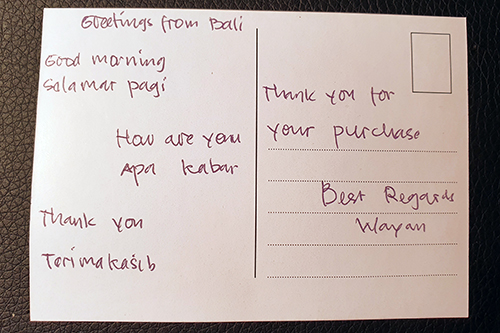 Greetings from Bali
Good morning
Salamar pagi
How are you
Apa kabar
Thank you
Torimakasib
Thank you for
your purchase
Best Regards
Wayan